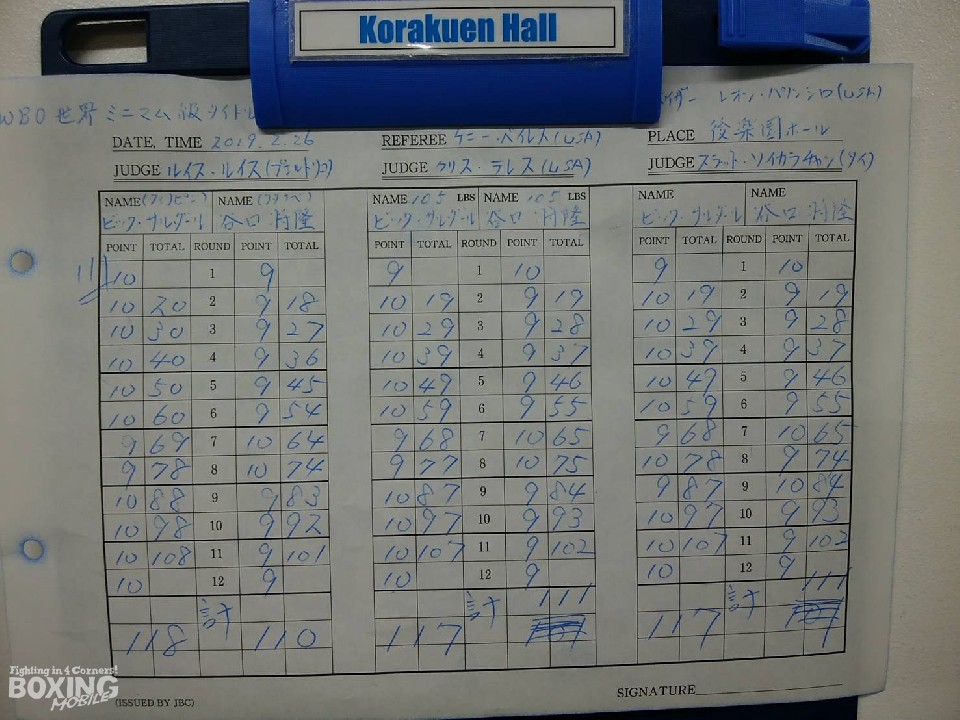 Korakuen Hall
WBO 世界 ミニマム級タイトル
DATE, TIME 2019. 2. 26 REFEREE ケニー・ベイレス(USA) PLACE 後楽園ホール
JUDGE ルイス・ルイス(プエルトリコ) JUDGE クリス・テレス(USA) JUDGE スラット・ソイカラチャン(タイ)
NAME(フィリピン) NAME NAME 105 LBS NAME 105 LBS NAME NAME
ビック・サルダール 谷口 将隆 ビック・サルダール 谷口 将隆 ビック・サルダール 谷口 将隆
POINT TOTAL ROUND POINT TOTAL POINT TOTAL ROUND POINT TOTAL POINT TOTAL ROUND POINT TOTAL
10 1 9 9 1 10 9 1 10
10 20 2 9 18 10 19 2 9 19 10 19 2 9 19
10 30 3 9 27 10 29 3 9 28 10 29 3 9 28
10 40 4 9 36 10 39 4 9 37 10 39 4 9 37
10 50 5 9 45 10 49 5 9 46 10 49 5 9 46
10 60 6 9 54 10 59 6 9 55 10 59 6 9 55
9 69 7 10 64 9 68 7 10 65 9 68 7 10 65
9 78 8 10 74 9 77 8 10 75 10 78 8 9 74
10 88 9 9 83 10 87 9 9 84 9 87 9 10 84
10 98 10 9 92 10 97 10 9 93 10 97 10 9 93
10 108 11 9 101 10 107 11 9 102 10 107 11 9 102
10 12 9 10 12 9 10 12 9
118 計 110 117 計 111 117 計 111
SIGNATURE
(ISSUED BY JBC)
Fighting in 4 Corners!
BOXING
MOBILE